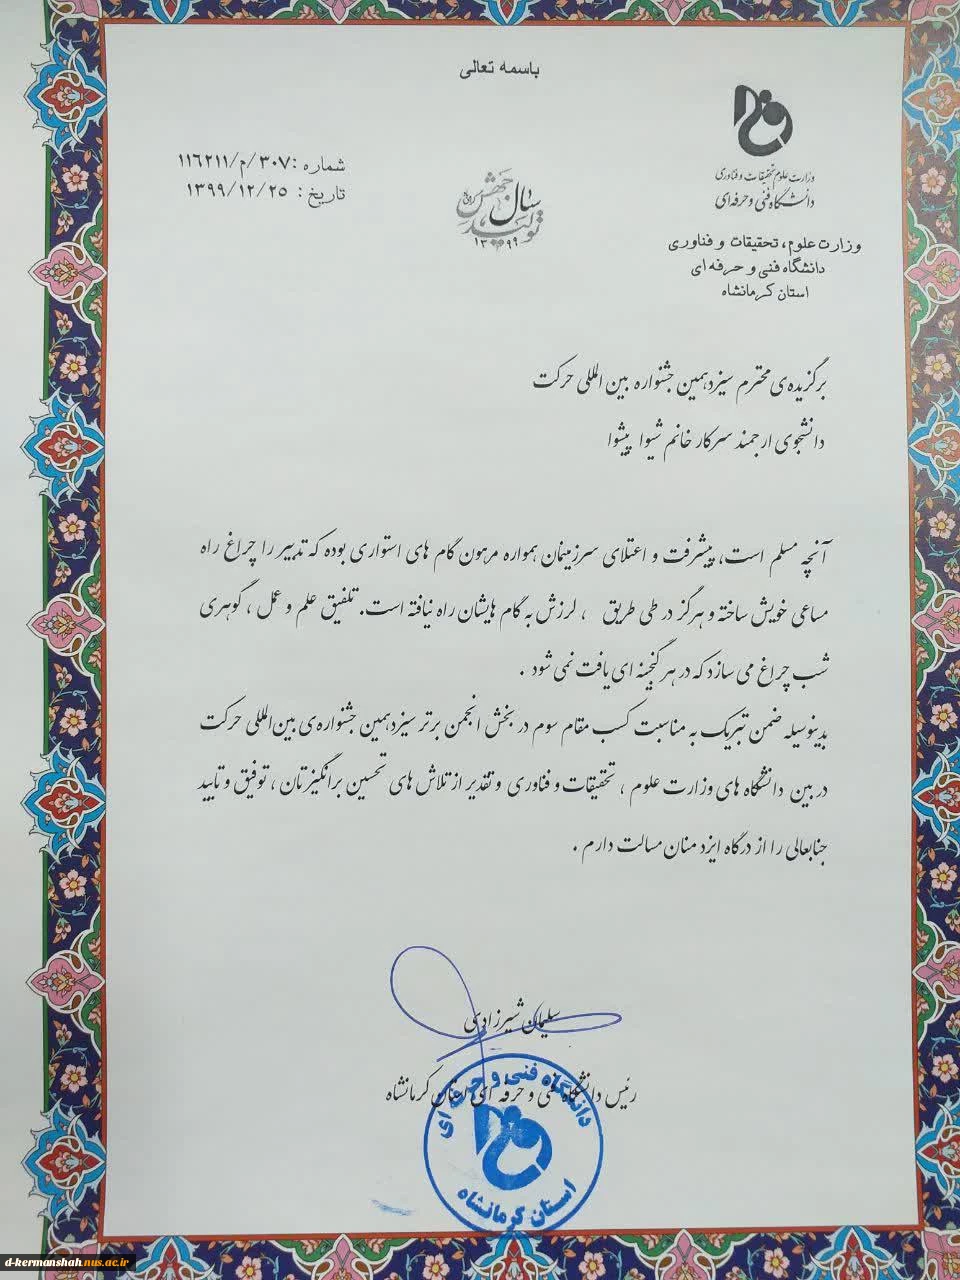 باسمه تعالی
وزارت علوم تحقیقات و فناوری
دانشگاه فنی و حرفه‌ای
وزارت علوم، تحقیقات و فناوری
دانشگاه فنی و حرفه ای
استان کرمانشاه
سال جهش
تولید
۱۳۹۹
شماره :۳۰۷/م/۱۱۶۲۱۱
تاریخ : ۱۳۹۹/۱۲/۲۵
برگزیده‌ی محترم سیزدهمین جشنواره بین المللی حرکت
دانشجوی ارجمند سرکار خانم شیوا پیشوا
آنچه مسلم است، پیشرفت و اعتلای سرزمینمان همواره مرهون گام های استواری بوده که تدبیر را چراغ راه
مساعی خویش ساخته و هرگز در طی طریق ، لرزش به گام هایشان راه نیافته است. تلفیق علم و عمل ، گوهری
شب چراغ می سازد که در هر گنجینه ای یافت نمی شود .
بدینوسیله ضمن تبریک به مناسبت کسب مقام سوم در بخش انجمن برتر سیزدهمین جشنواره‌ی بین‌المللی حرکت
در بین دانشگاه های وزارت علوم ، تحقیقات و فناوری و تقدیر از تلاش های تحسین برانگیزتان ، توفیق و تایید
جنابعالی را از درگاه ایزد منان مسالت دارم .
سلیمان شیرزادی
رئیس دانشگاه فنی و حرفه ای استان کرمانشاه
دانشگاه فنی و حرفه ای
استان کرمانشاه
d-kermanshah.nus.ac.ir